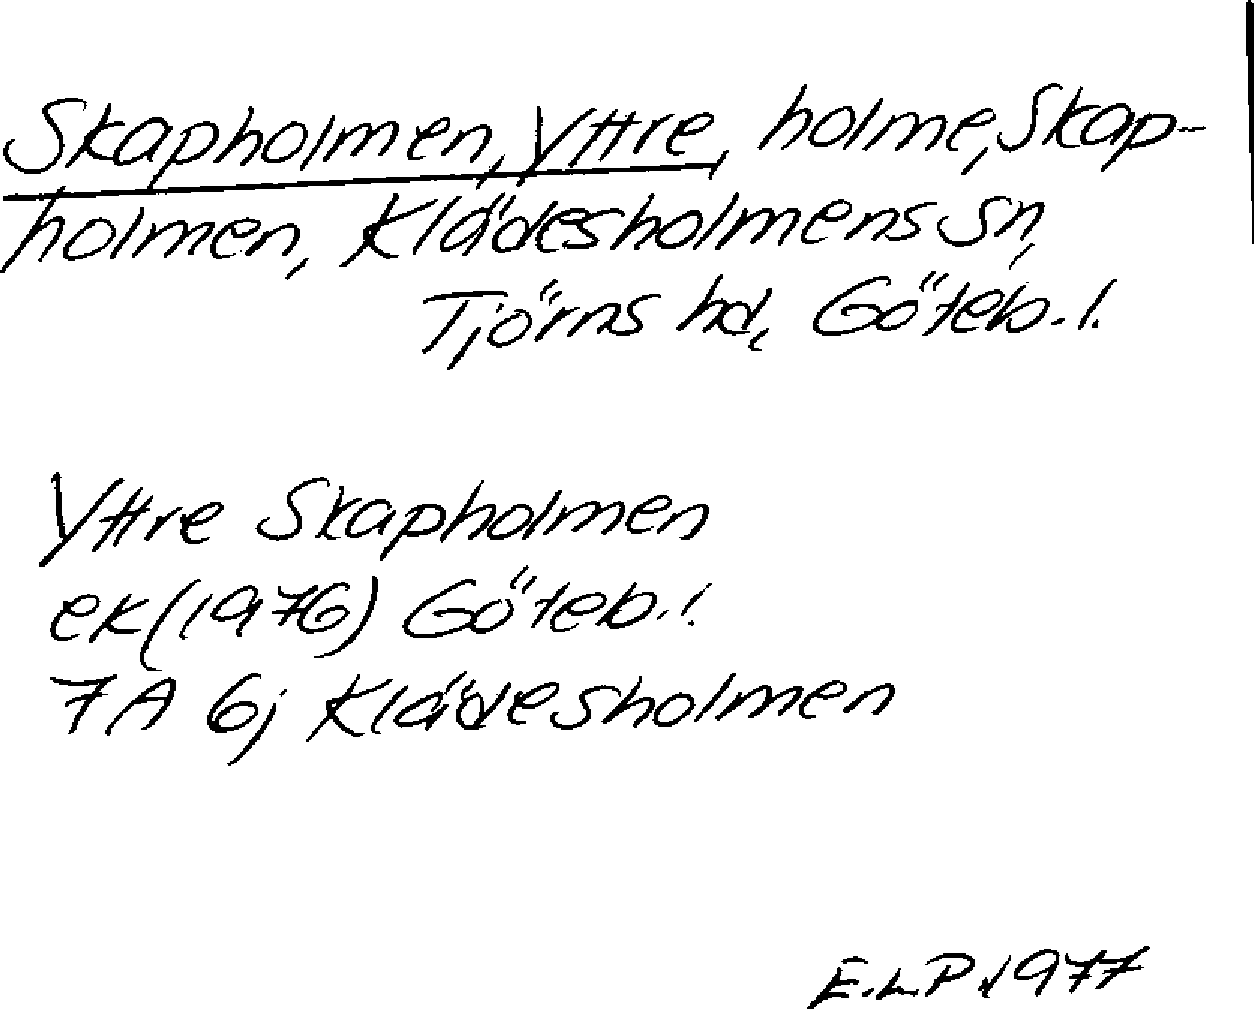 Skapholmen, Yttre, holme, Skap-
holmen, Klädesholmens sn,
Tjörns hd, Göteb. l.
Yttre Skapholmen
ek (1976) Göteb. l.
7A 6j Klädesholmen
E.L.P. 1977